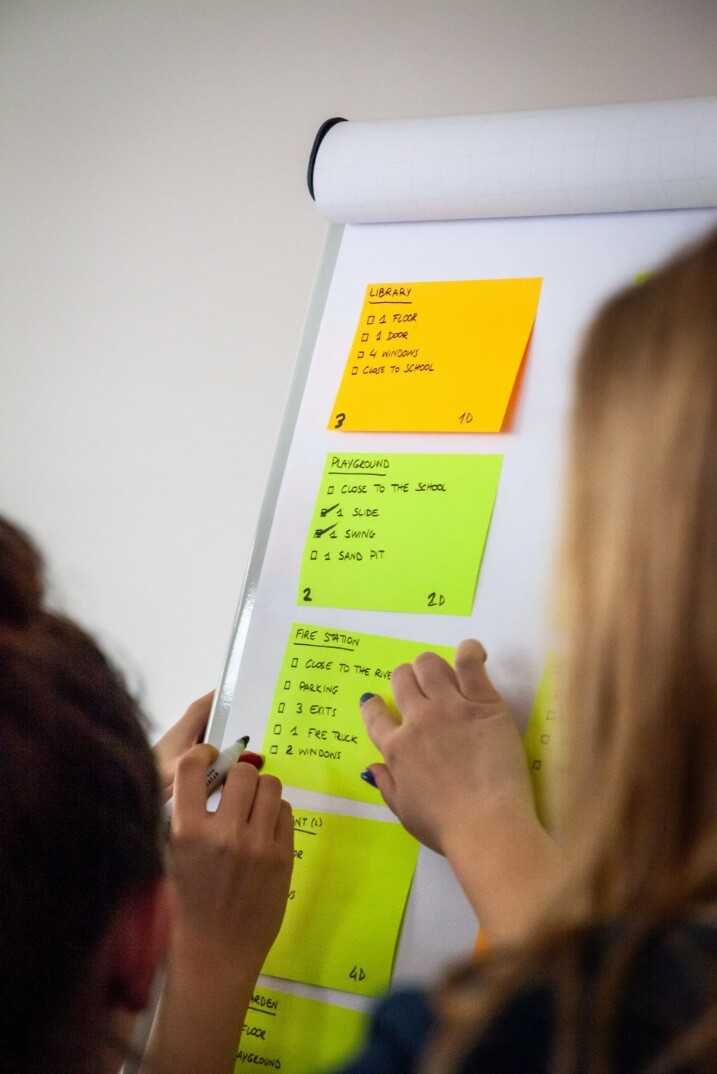 LIBRARY
1 FLOOR
1 DOOR
4 WINDOWS
CLOSE TO SCHOOL
3 1D
PLAYGROUND
CLOSE TO THE SCHOOL
1 SLIDE
1 SWING
1 SAND PIT
2 2D
FIRE STATION
CLOSE TO THE RIVE
PARKING
3 EXITS
1 FIRE TRUCK
2 WINDOWS
NT (2)
OR
S
4D
ARDEN
FLOOR
AYGROUND